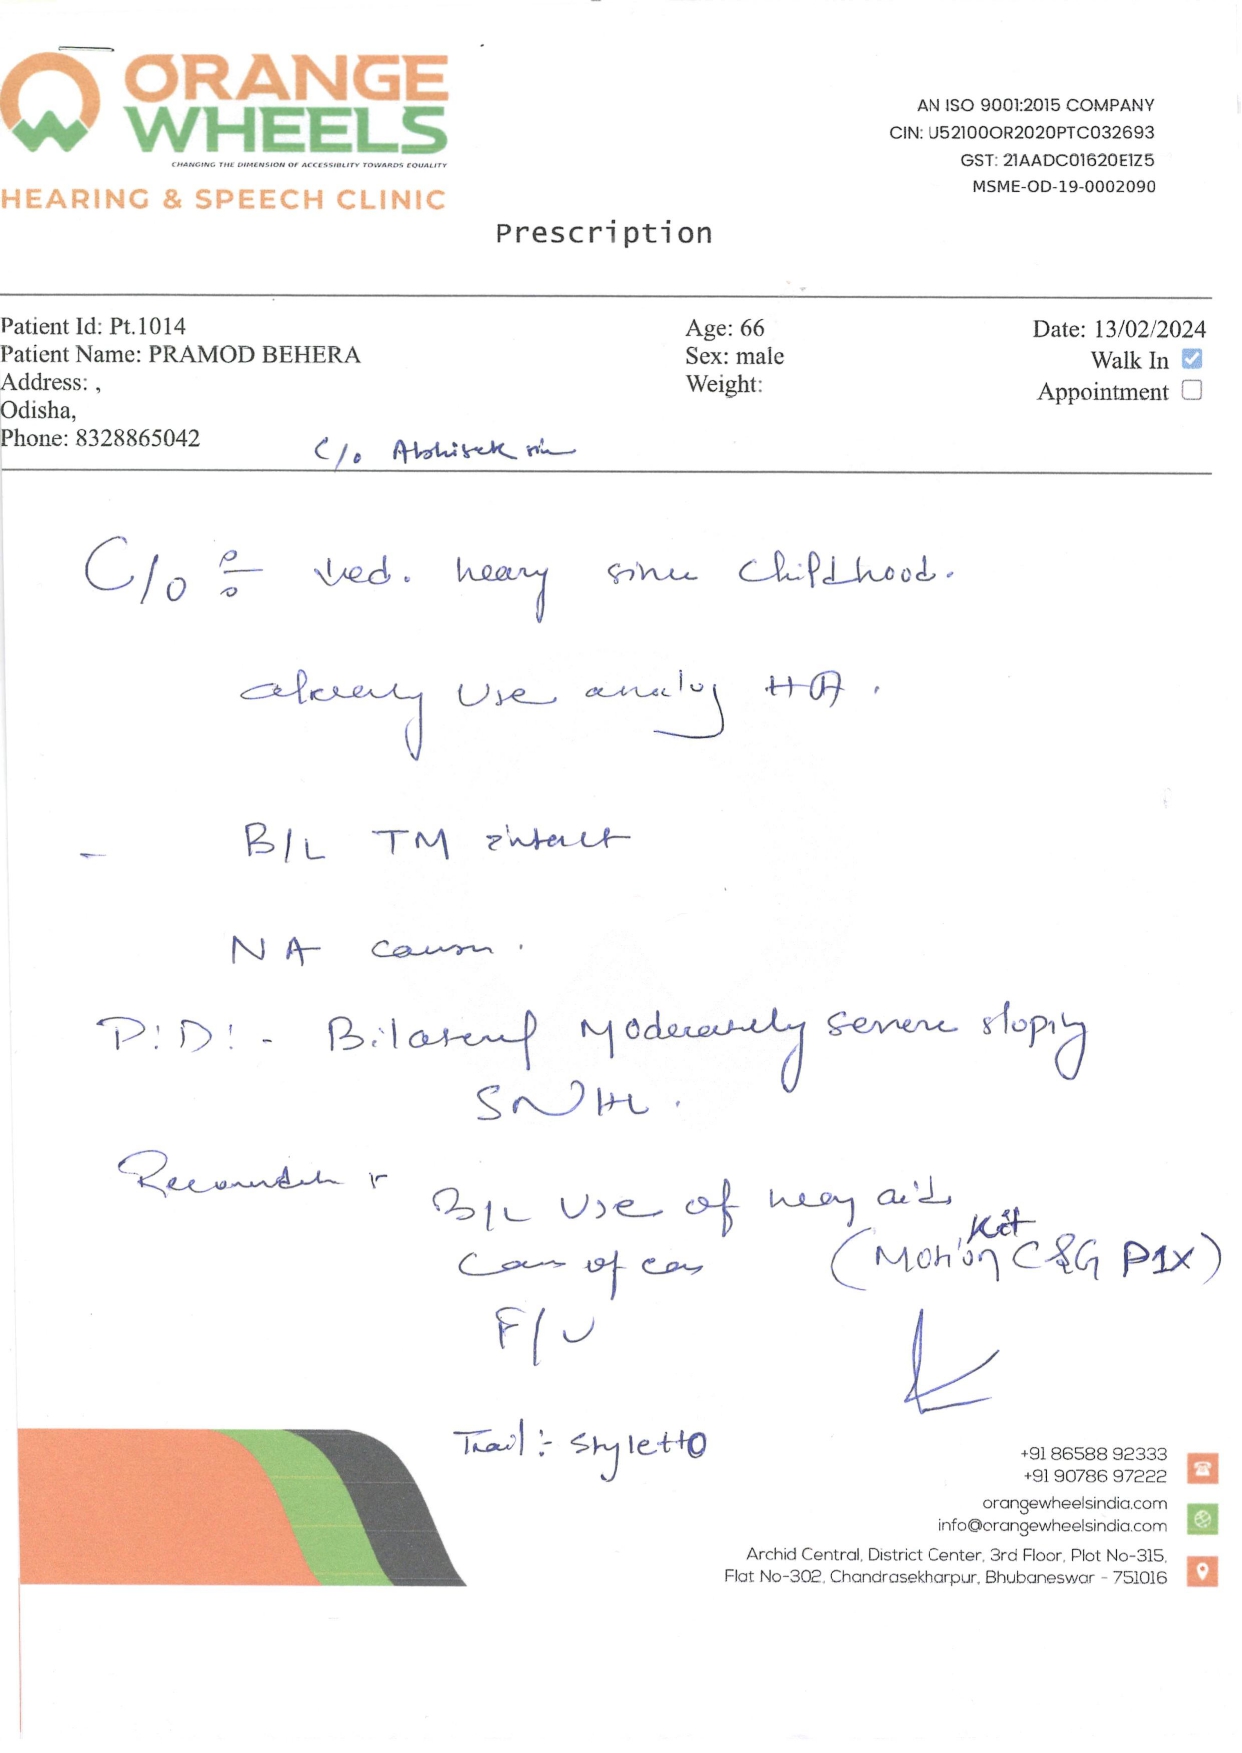 ORANGE
WHEELS
CHANGING THE DIMENSION OF ACCESSIBLITY TOWARDS EQUALITY
HEARING & SPEECH CLINIC
AN ISO 9001:2015 COMPANY
CIN: U52100OR2020PTC032693
GST: 21AADCO1620E1Z5
MSME-OD-19-0002090
Prescription
Patient Id: Pt.1014
Patient Name: PRAMOD BEHERA
Address: ,
Odisha,
Phone: 8328865042
Age: 66
Sex: male
Weight:
Date: 13/02/2024
Walk In
Appointment
C/o Abhisek sir
C/o ↓ed. hearing since childhood.
already use analog HA.
- B/L TM intact
NA
P.D:- Bilateral Moderately severe sloping
SNHL.
B/L Use of hearing aid
(Motion Kit C&G P1X)
of
F/U
Trail :- Styletto
+91 86588 92333
+91 90786 97222
orangewheelsindia.com
info@orangewheelsindia.com
Archid Central, District Center, 3rd Floor, Plot No-315,
Flat No-302, Chandrasekharpur, Bhubaneswar - 751016